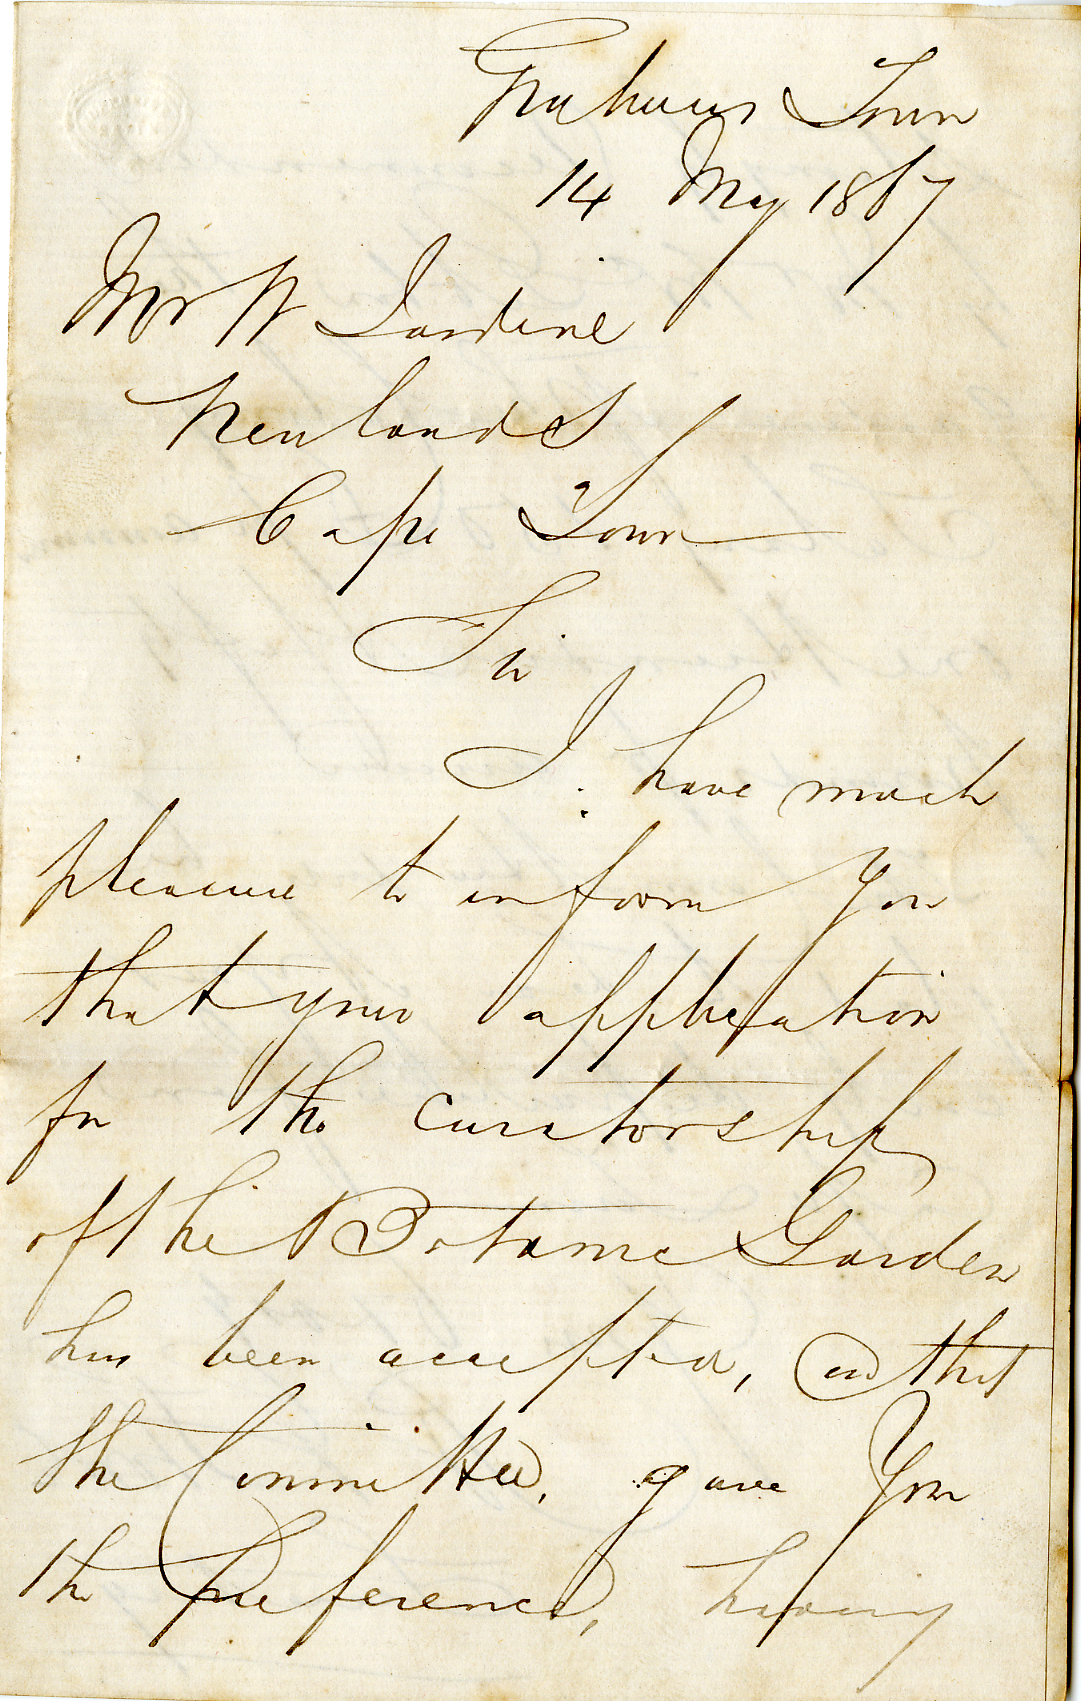 Grahams Town
14 May 1867
Mr W Jardine
Newlands
Cape Town
Sir
I have much
pleasure to inform You
that your application
for the curatorship
of the Botanic Garden
has been accepted, and that
the Committee, gave You
the preference, having